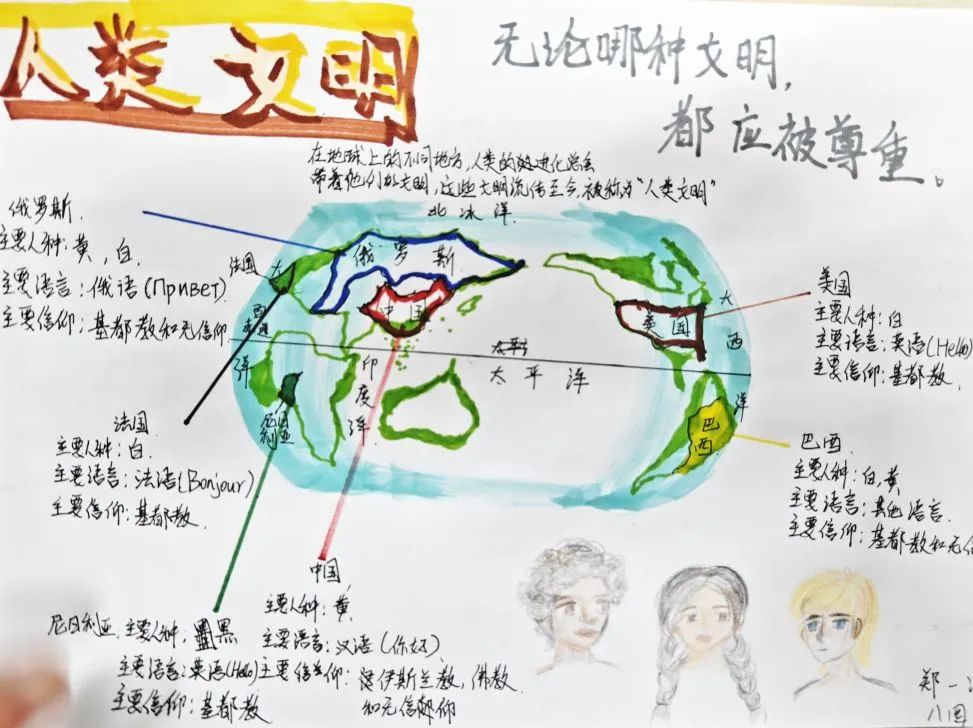 人类文明
无论哪种文明，
都应被尊重。
在地球上的不同地方，人类的
带着他们的文明，这些文明流传至今，被称为"人类文明"
北冰洋
俄罗斯
主要人种：黄，白
主要语言：俄语(Привет)
主要信仰：基都教和无信仰
法国
俄罗斯
中国
美国
大西洋
大
洋
印度洋
太平洋
太平洋
尼日利亚
巴西
美国
主要人种：白
主要语言：英语(Hello)
主要信仰：基都教
法国
主要人种：白
主要语言：法语(Bonjour)
主要信仰：基都教
巴西
主要人种：白，黄
主要语言：其他语言
主要信仰：基都教和无信
中国
主要人种：黄
主要语言：汉语(你好)
主要信仰：伊斯兰教，佛教
和无信仰
尼日利亚
主要人种：黑
主要语言：英语(Hello)
主要信仰：基都教
郑一
八